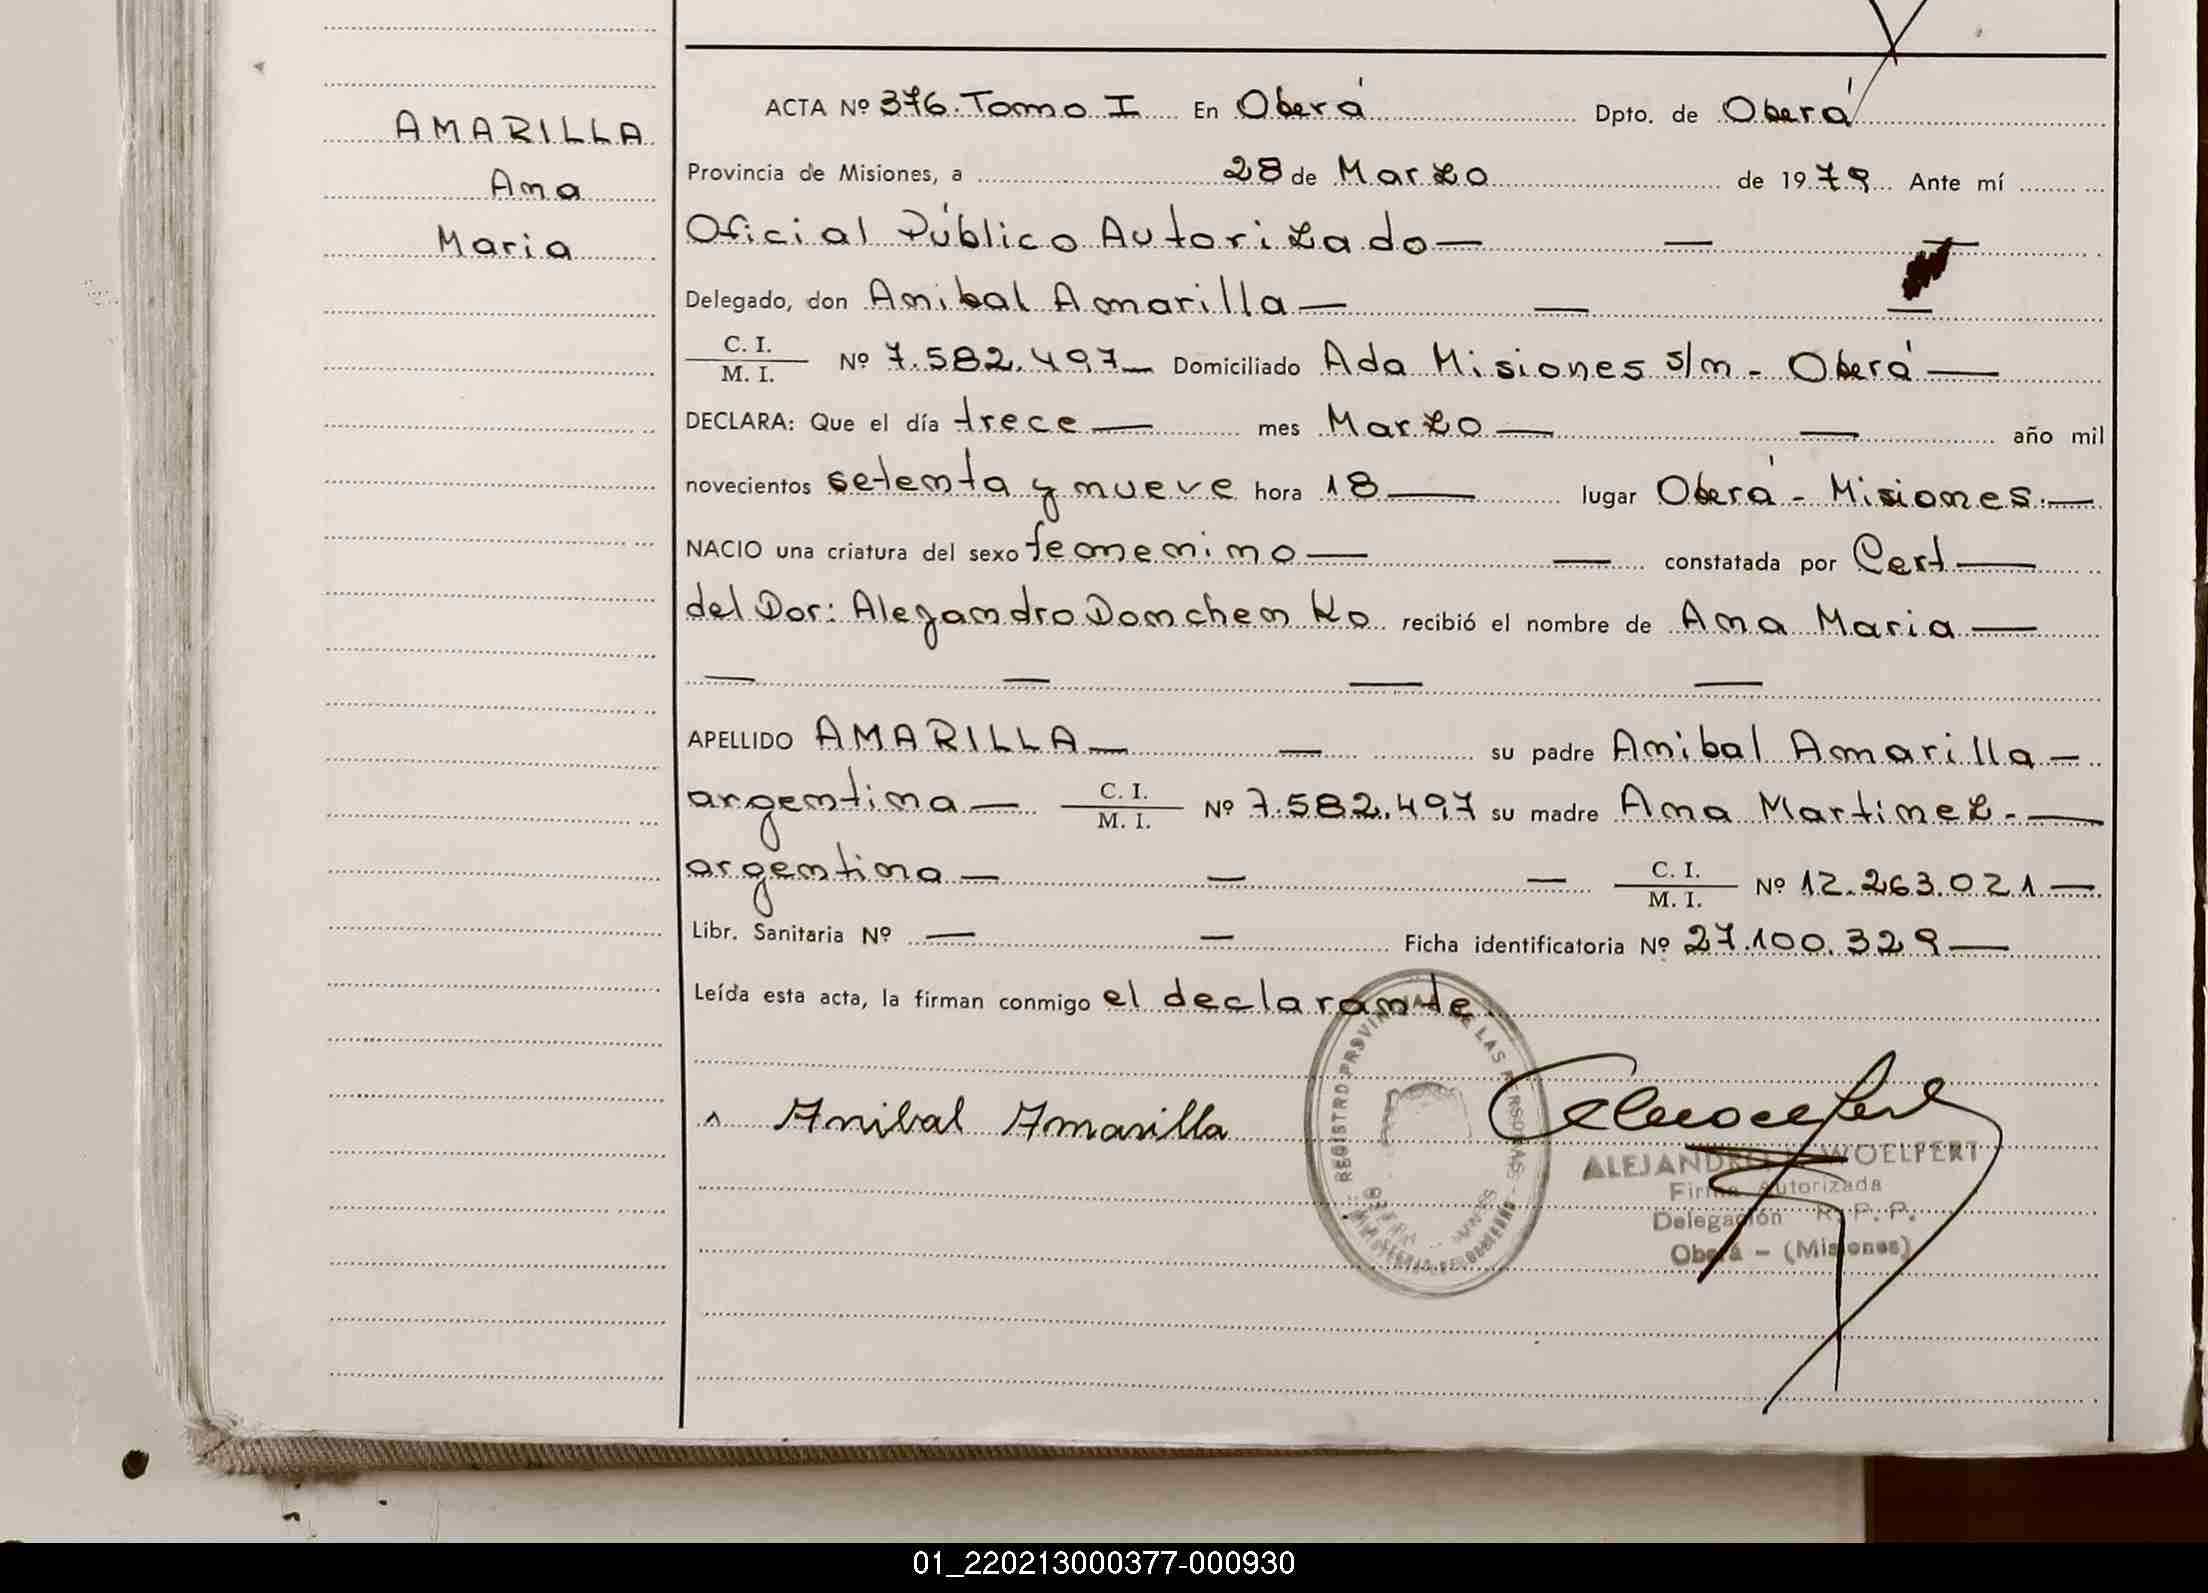 AMARILLA
Ana
Maria
ACTA Nº 376. Tomo I En Oberá Dpto. de Oberá
Provincia de Misiones, a 28 de Marzo de 1979 Ante mí
Oficial Público Autorizado —
Delegado, don Anibal Amarilla —
C. I.
M. I. Nº 7.582.497 — Domiciliado Ada Misiones s/n - Oberá —
DECLARA: Que el día trece — mes Marzo — año mil
novecientos setenta y nueve hora 18 — lugar Oberá - Misiones. —
NACIO una criatura del sexo femenino — constatada por Cert —
del Dor: Alejandro Donchenko recibió el nombre de Ana Maria —
APELLIDO AMARILLA — su padre Anibal Amarilla —
argentina — C. I.
M. I. Nº 7.582.497 su madre Ana Martinez - —
argentina — C. I.
M. I. Nº 12.263.021 —
Libr. Sanitaria Nº — Ficha identificatoria Nº 27.100.329 —
Leída esta acta, la firman conmigo el declarante.
Anibal Amarilla
REGISTRO PROVINCIAL DE LAS PERSONAS
ALEJANDRO WOELFERT
Firma Autorizada
Delegación R. P. P.
Oberá - (Misiones)
01_220213000377-000930